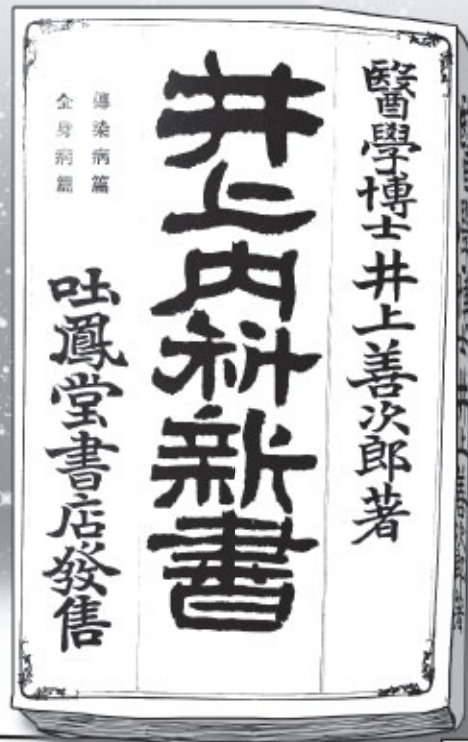 醫學博士井上善次郎著
井上内科新書
傳染病篇
全身病篇
吐鳳堂書店發售